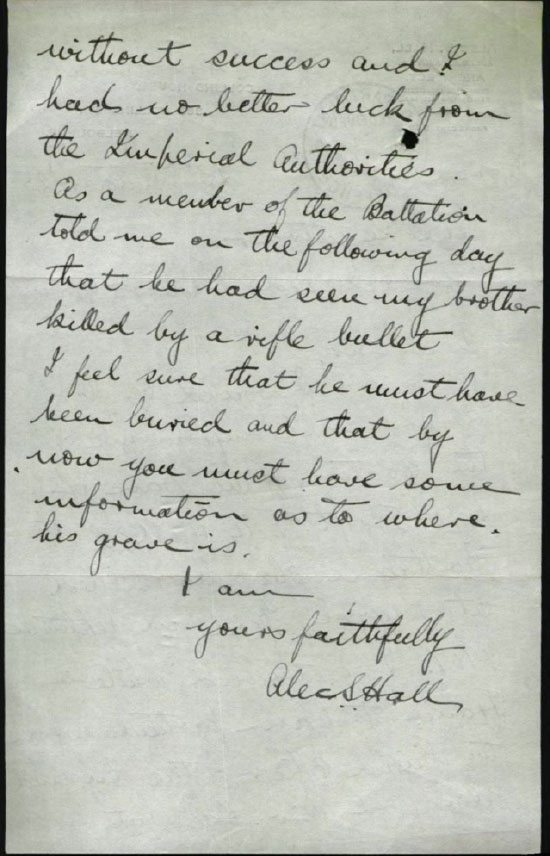 without success and I
had no better luck from
the Imperial Authorities.
As a member of the Battation
told me on the following day
that he had seen my brother
killed by a rifle bullet
I feel sure that he must have
been buried and that by
now you must have some
information as to where.
his grave is.
I am
yours faithfully
Alec S. Hall